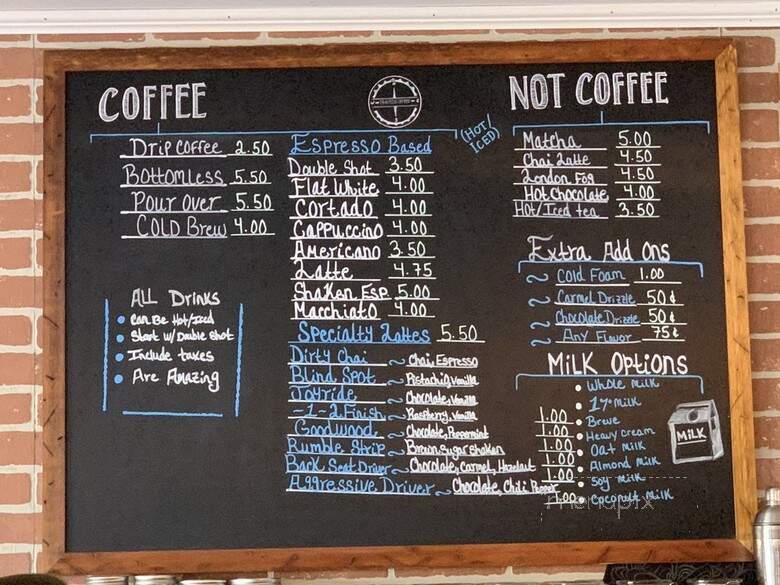 COFFEE
Drip Coffee 2.50
Bottomless 5.50
Pour Over 5.50
Cold Brew 4.00
ALL Drinks
Can Be Hot/Iced
Start w/ Double Shot
Include taxes
Are Amazing
Espresso Based
(HOT/
ICED)
Double Shot 3.50
Flat White 4.00
Cortado 4.00
Cappuccino 4.00
Americano 3.50
Latte 4.75
Shaken Esp. 5.00
Macchiato 4.00
Specialty Lattes 5.50
Dirty Chai ~ Chai, Espresso
Blind Spot ~ Pistachio, Vanilla
Joyride ~ Chocolate, Vanilla
-1-2 Finish ~ Raspberry, Vanilla
Goodwood ~ Chocolate, Peppermint
Rumble Strip ~ Brown Sugar Shaken
Back Seat Driver ~ Chocolate, Carmel, Hazelnut
Aggressive Driver ~ Chocolate, Chili Pepper
NOT COFFEE
Matcha 5.00
Chai Latte 4.50
London Fog 4.50
Hot Chocolate 4.00
Hot/Iced tea 3.50
Extra Add Ons
~ Cold Foam 1.00
~ Carmel Drizzle 50¢
~ Chocolate Drizzle 50¢
~ Any Flavor 75¢
MiLK OPtions
Whole Milk
1% Milk
1.00 Breve
1.00 Heavy Cream
1.00 Oat Milk
1.00 Almond Milk
1.00 Soy Milk
1.00 Coconut Milk
MiLK
menupix